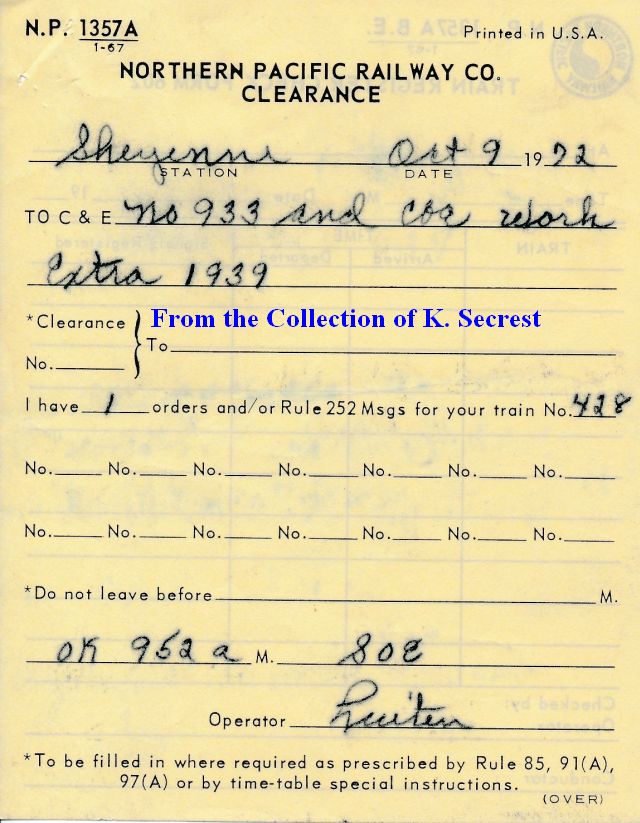 N.P. 1357A
1-67
Printed in U.S.A.
NORTHERN PACIFIC RAILWAY CO.
CLEARANCE
Sheyenne Oct 9 1972
STATION DATE
TO C & E No 933 and Coa Work
Extra 1939
*Clearance
From the Collection of K. Secrest
To
No.
I have 1 orders and/or Rule 252 Msgs for your train No. 428
No. No. No. No. No. No. No.
No. No. No. No. No. No. No.
*Do not leave before M.
OK 952 a M. SOE
Operator Luiten
*To be filled in where required as prescribed by Rule 85, 91(A),
97(A) or by time-table special instructions.
(OVER)